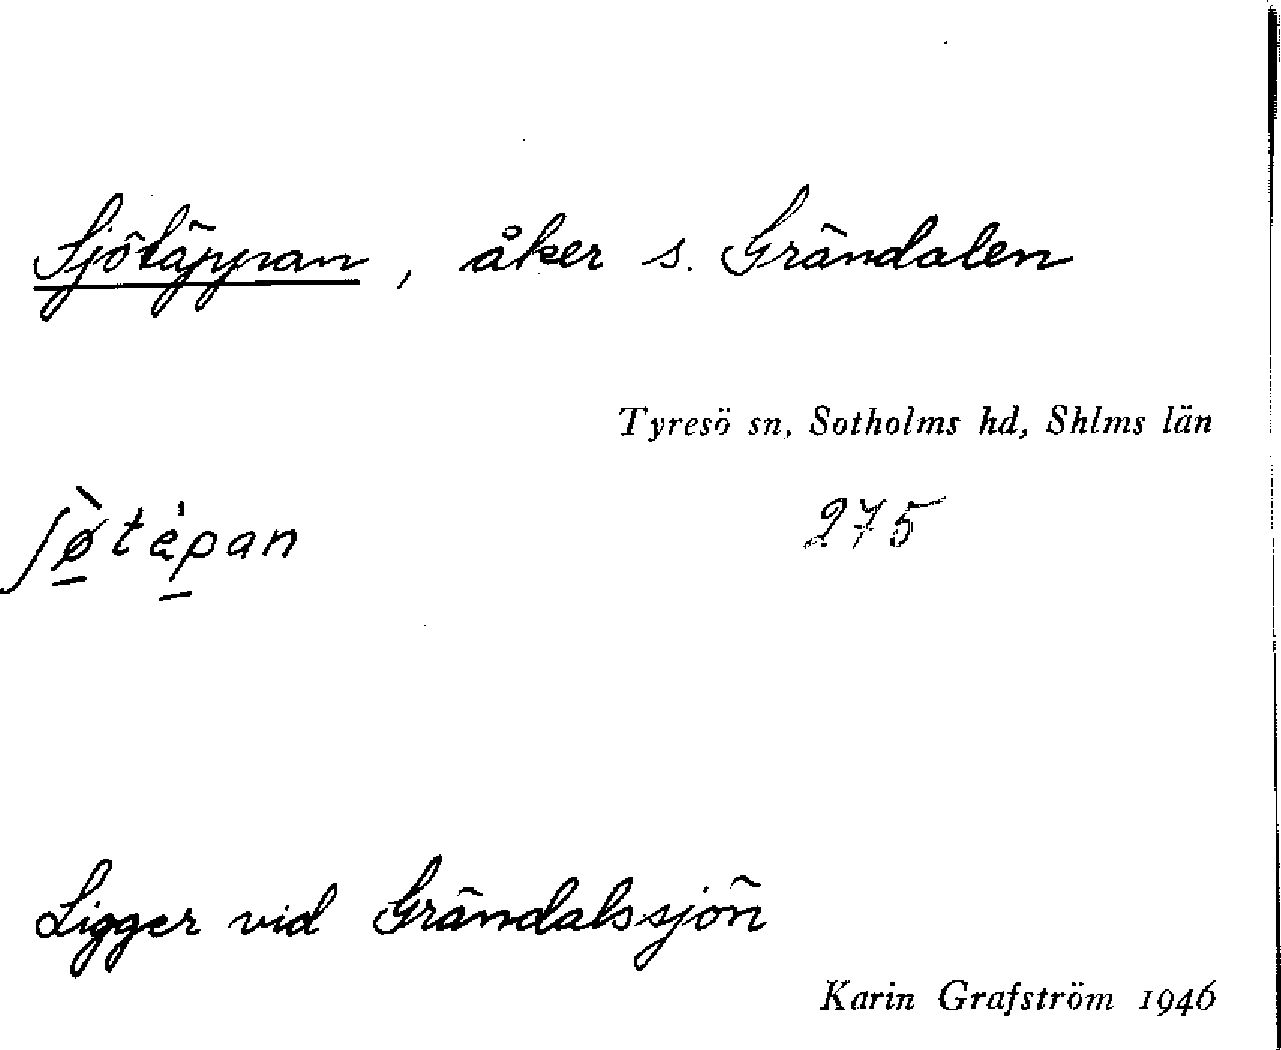 Sjötäppan, åker s. Grändalen
Tyresö sn, Sotholms hd, Shlms län
ʃø̠̀tèp̠an
275
Ligger vid Grändalssjön
Karin Grafström 1946